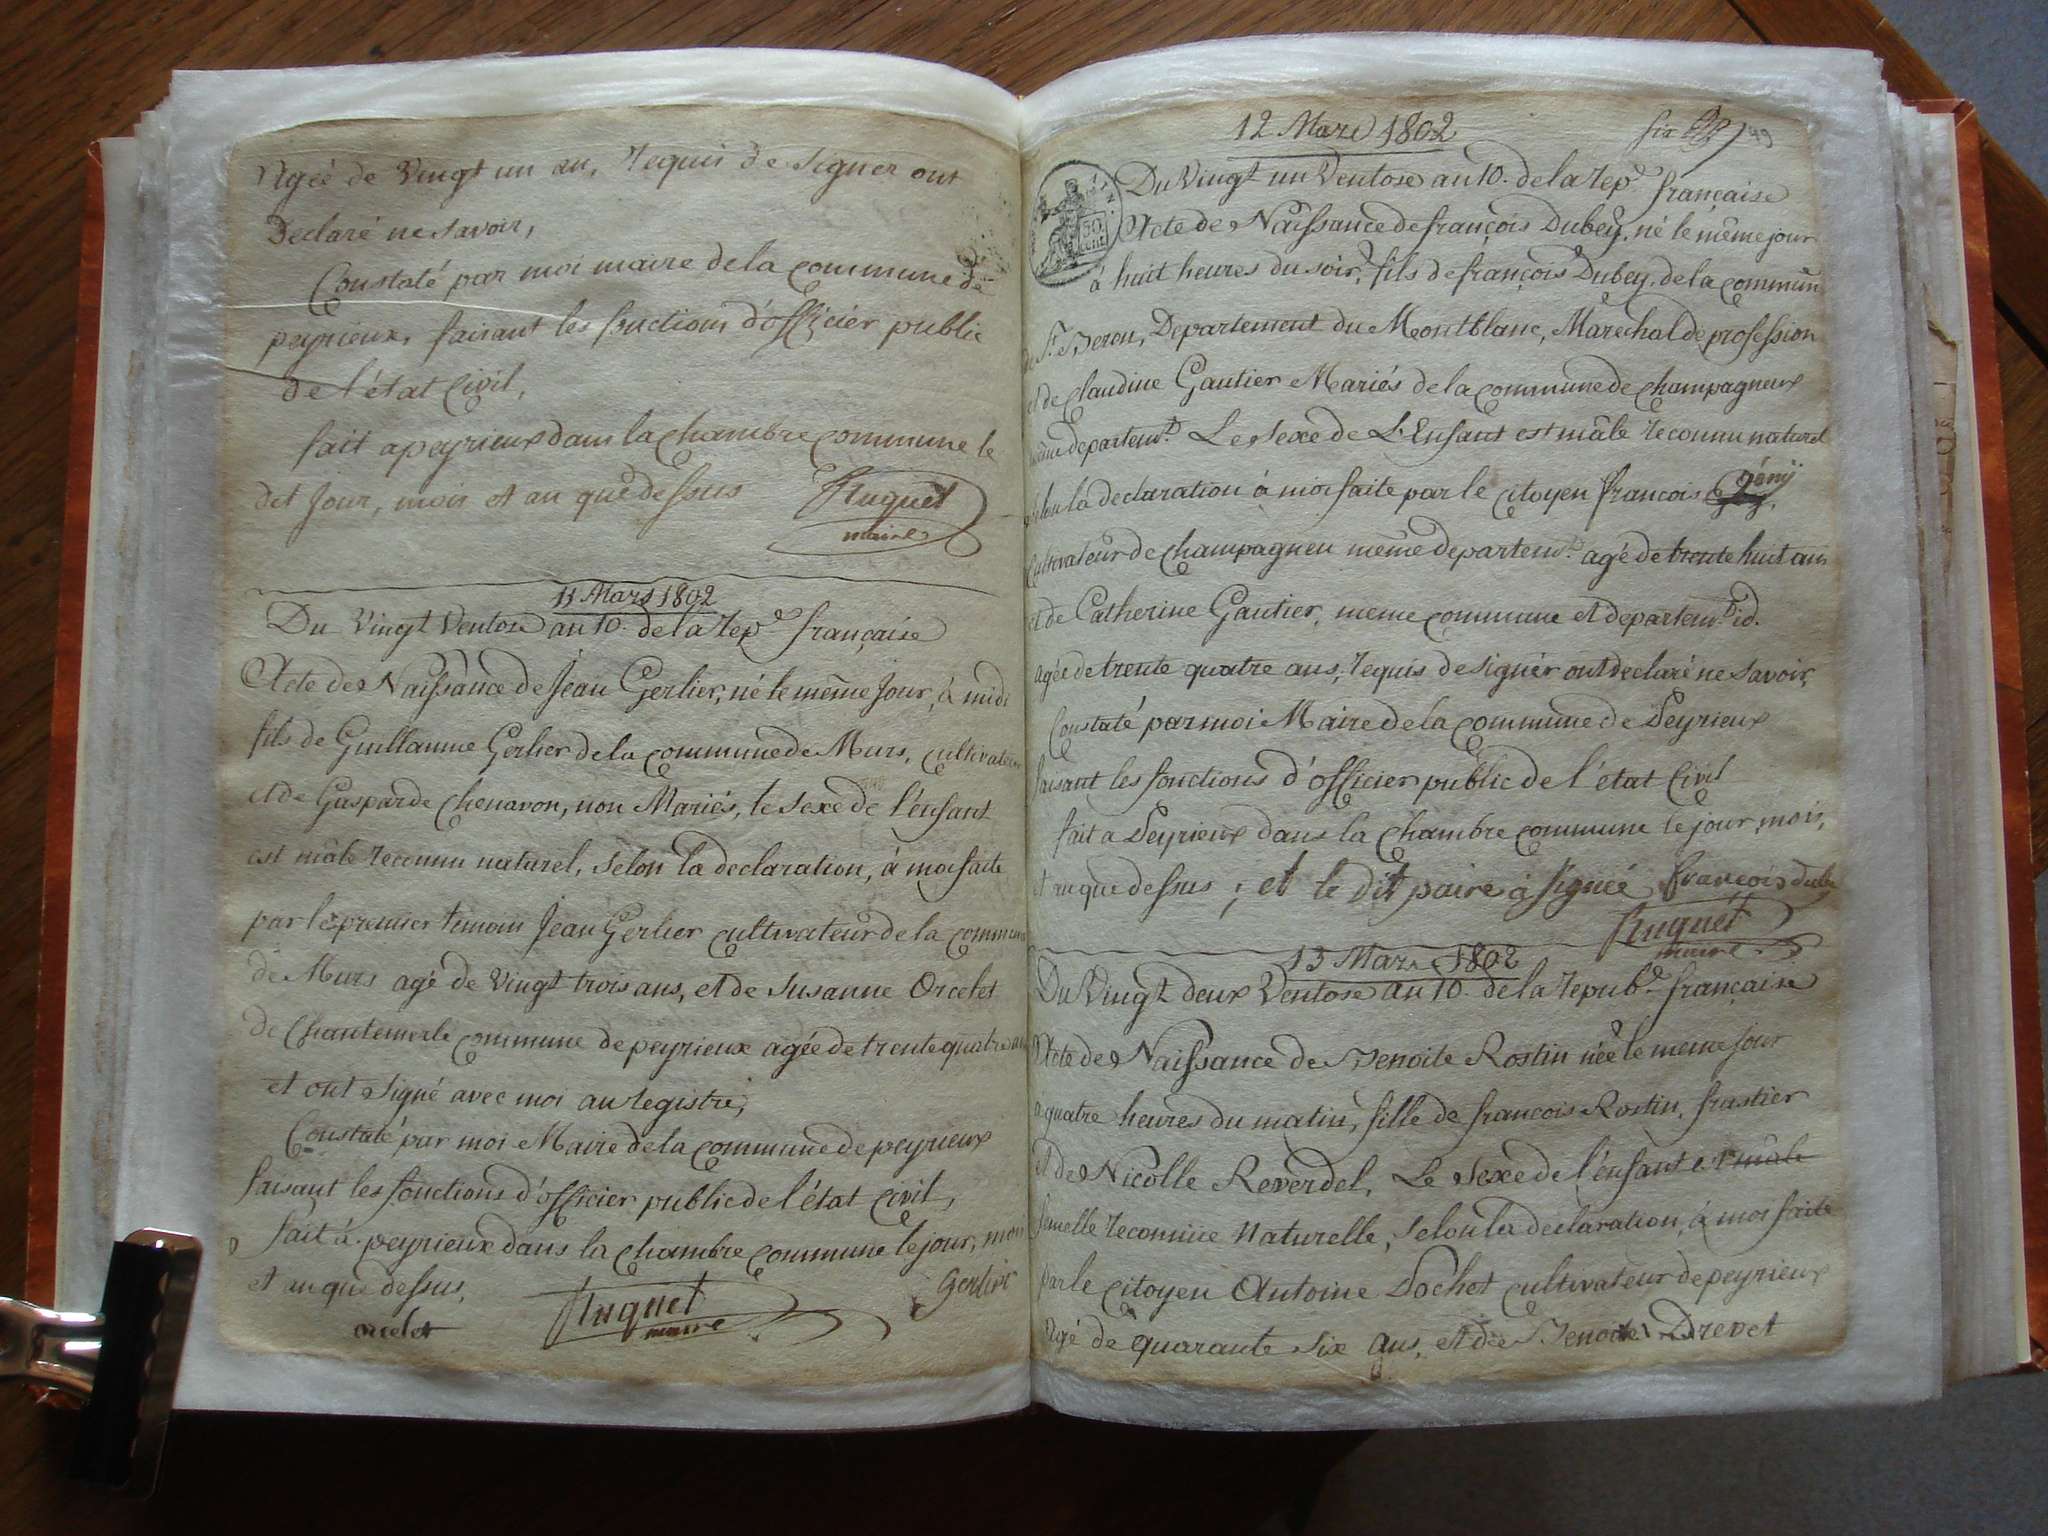 Agée de Vingt un an, requis de signer ont
Declaré ne savoir,
Constaté par moi maire de la commune de
peyrieux, faisant les fonctions d'officier public
de l'état Civil,
fait a peyrieux dans la chambre commune le
dit Jour, mois et an que dessus
Huguet
maire
11 Mars 1802
Du Vingt Ventose an 10. de la rep.e française
Acte de Naissance de Jean Gerlier, né le même Jour, à midi
fils de Guillaume Gerlier de la commune de Murs, cultivateur
et de Gasparde Chenavon, non Mariés, le sexe de l'enfant
est mâle reconnu naturel, selon la declaration, à moi faite
par le premier temoin Jean Gerlier cultivateur de la commune
de Murs agé de Vingt trois ans, et de Susanne Orcelet
de Chantemerle commune de peyrieux agée de trente quatre ans
et ont signé avec moi au registre,
Constaté par moi Maire de la commune de peyrieux
faisant les fonctions d'officier public de l'état Civil,
fait à peyrieux dans la chambre commune le jour, mois
et an que dessus,
Gerlier
orcelet
Huguet
maire
12 Mars 1802
six
49
Du Vingt un Ventose an 10. de la rep.e française
50
cent
Acte de Naissance de françois Dubey, né le même jour
à huit heures du soir, fils de françois Dubey, de la commune
de St. Beron, Departement du Montblanc, Marechal de profession
et de Claudine Gautier Mariés de la commune de Champagneux
même departem.t Le sexe de L'Enfant est mâle reconnu naturel
selon la declaration à moi faite par le citoyen françois
Cultivateur de Champagneu même departem.t agé de trente huit ans
et de Catherine Gautier, meme commune et departem.t id.
agée de trente quatre ans, requis de signer ont declaré ne savoir,
Constaté par moi Maire de la commune de Peyrieux
faisant les fonctions d'officier public de l'état Civil
fait a Peyrieux dans la chambre commune le jour, mois,
et an que dessus ; et le dit paire à signée françois dube
Huguet
maire
13 Mars 1802
Du Vingt deux Ventose an 10. de la repub.e française
Acte de Naissance de Benoite Rostin née le meme Jour
a quatre heures du matin, fille de francois Rostin, frastier
et de Nicolle Reverdel, Le sexe de l'enfant est mâle
femelle reconnue Naturelle, selon la declaration, à moi faite
par le citoyen Antoine Pochet cultivateur de peyrieux
agé de quarante six ans, et de Benoite Drevet